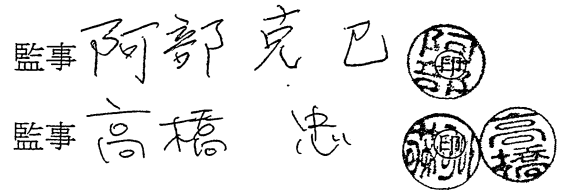 監事 阿部 克巳 ㊞
監事 高橋 忠 ㊞ 高橋